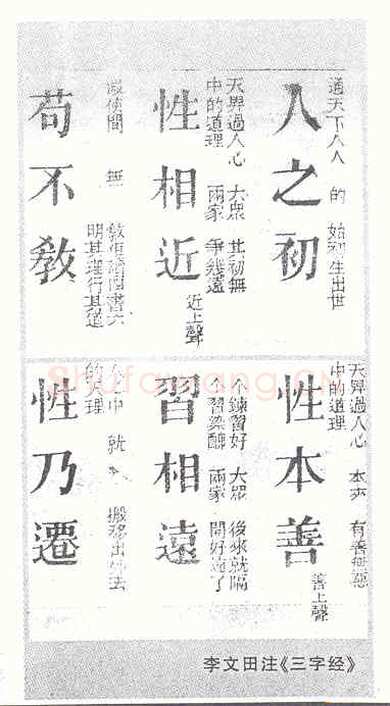 通天下人人 的 始初生出世
人之初
天畀過人心 本來 有善無惡
中的道理
性本善
善上聲
天畀過人心 大眾 其初無
中的道理 兩家 爭幾遠
性相近
近上聲
个練習好 大眾 後來就隔
个習染醜 兩家 開好遠了
習相遠
無
明其理行其道
苟不教
中 就 搬移出外去
性乃遷
李文田注《三字经》
Shufawang.CN